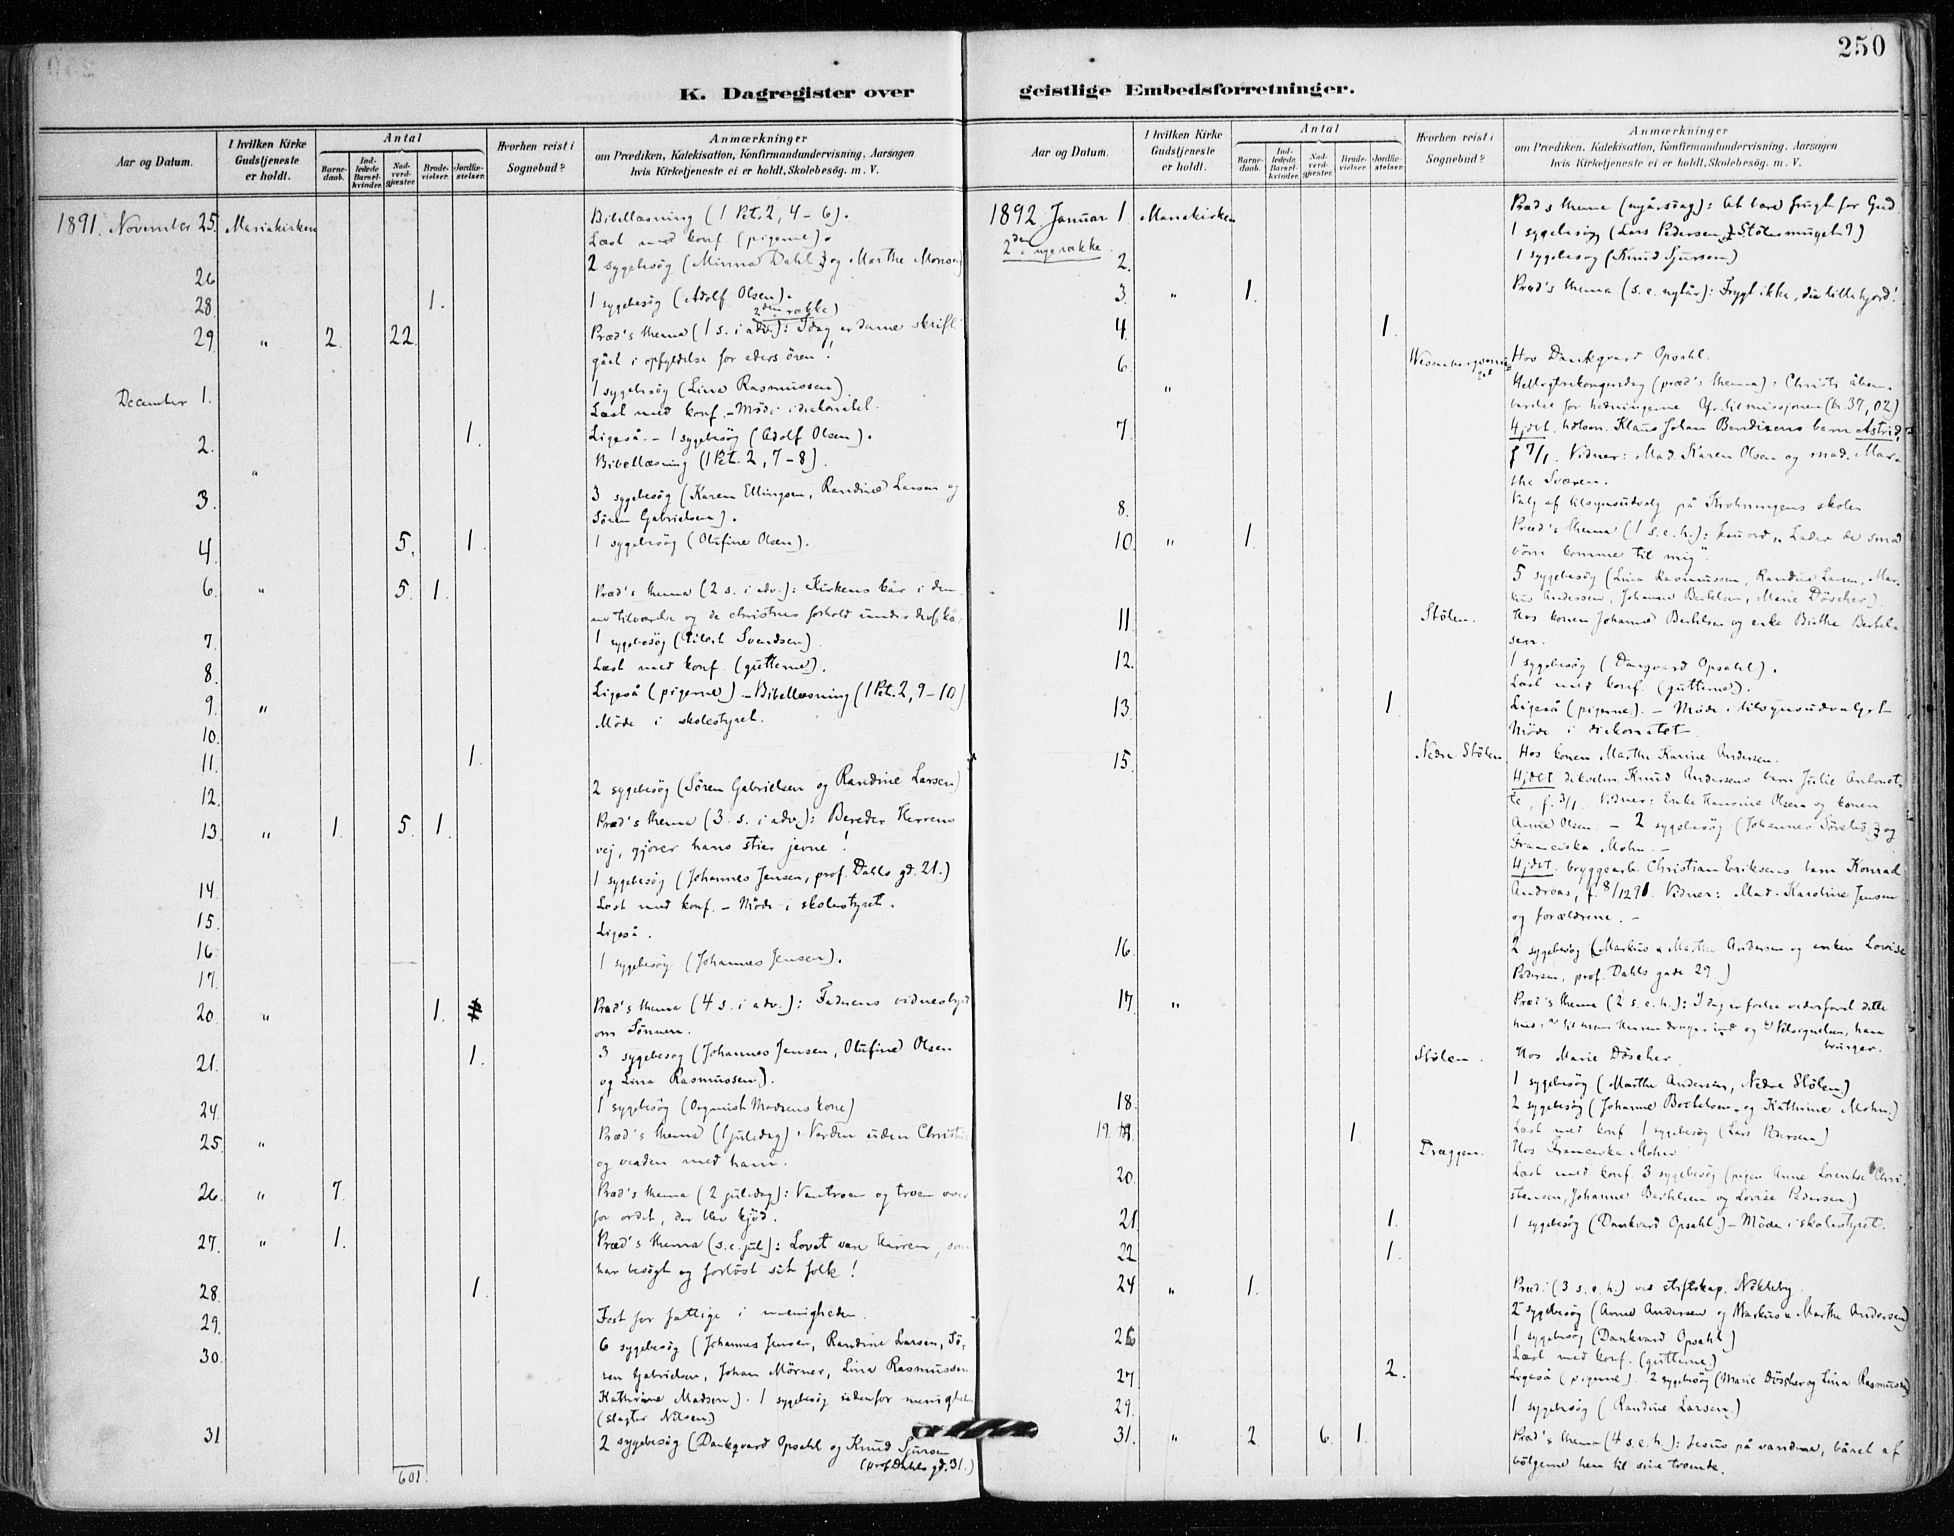 250
K. Dagregister over geistlige Embedsforretninger.
Aar og Datum.
I hvilken Kirke Gudstjeneste er holdt.
Antal
Barnedaab.
Indledede Barselkvinder.
Nadverdgjester.
Brudevielser.
Jordfæstelser.
Hvorhen reist i Sognebud?
Anmærkninger
om Prædiken, Katekisation, Konfirmandundervisning, Aarsagen
hvis Kirketjeneste ei er holdt, Skolebesøg. m. V.
1891. November 25. Mariakirken Bibellæsning (1 Pet. 2, 4-6).
Læst med konf. (pigerne).
26 2 sygebesög (Minna Dahl og Marthe Monsen)
28 1. 1 sygebesög (Adolf Olsen).
2den række)
29. " 2. 22 Præd's thema (1 s. i adv.): Idag er denne skrift
gået i opfyldelse for eders ören!
December 1. 1 sygebesög (Lina Rasmussen)
Læst med konf. - Möde i diakonatet.
2. 1. Ligeså. - 1 sygebesög (Adolf Olsen).
" Bibellæsning (1 Pet. 2, 7-8).
3. 3 sygebesög (Karen Ellingsen, Randine Larsen og
Sören Gabrielsen).
4. 5. 1. 1 sygebesög (Olufine Olsen).
6. " 5. 1. Præd's thema (2 s. i adv.): Kirkens kår i den
nu tilværelse og de christnes forhold under
7. 1 sygebesög (Svendsen)
8. Læst med konf. (gutterne).
9. " Ligeså (pigerne). - Bibellæsning (1 Pet. 2, 9-10)
10. Möde i skolestyret.
11. 1.
12. 2 sygebesög (Sören Gabrielsen og Randine Larsen)
13. " 1. 5. 1. Præd's thema (3. s. i adv.): Bereder Herrens
vej, gjörer hans stier jevne!
14. 1 sygebesög (Johannes Jensen, prof. Dahls gd. 21.)
15. Læst med konf. - Möde i skolestyret.
16. Ligeså.
17. 1 sygebesög (Johannes Jensen).
20. " 1. Præd's thema (4 s. i adv.): Faderens vidnesbyrd
om Sönnen.
21. 1. 3 sygebesög (Johannes Jensen, Olufine Olsen
og Lina Rasmussen).
24. 1 sygebesög (Organist Madsens kone)
25. " Præd's thema (1 juledag): Verden uden Christus
og verden med ham.
26. " 7. Præd's thema (2 juledag): Vantroen og troen over
for ordet, der blev kjöd.
27. " 1. Præd's thema (s. e. jul): Lovet være Herren,
har besögt og forlöst sit folk!
28. 1.
29. Fest for fattige i menigheden.
30. 6 sygebesög (Johannes Jensen, Randine Larsen, Sö-
ren Gabrielsen, Johan Mörner, Lina Rasmussen
Kathrine Madsen). 1 sygebesög udenfor menigheden
(slagter Nilsen)
31 2 sygebesög (Dankqvard Opsahl og Knud Sjursen
(prof. Dahls gd. 31.)
601.
Aar og Datum.
I hvilken Kirke Gudstjeneste er holdt.
Antal
Barnedaab.
Indledede Barselkvinder.
Nadverdgjester.
Brudevielser.
Jordfæstelser.
Hvorhen reist i Sognebud?
Anmærkninger
om Prædiken, Katekisation, Konfirmandundervisning, Aarsagen
hvis Kirketjeneste ei er holdt, Skolebesøg. m. V.
1892. Januar 1 Mariakirken Præd's thema (nyårsdag): At bære frugt for Gud.
2den nye række. 1 sygebesög (Lars Pedersen, Stölesmuget 9)
2. 1 sygebesög (Knud Sjursen)
3. " 1. Præd's thema (s. e. nytår): Frygt ikke, du lille hjord!
4. 1.
6. Hos Dankqvard Opsahl.
" Helligtrekongersdag (præd's thema): Christi åben-
barelse for hedningerne. til missjonen (kr. 37,02)
7. Hjdbt. Klaus Johan Bendixens barn Astrid,
f. 7/1. Vidner: Mad. Karen Olsen og mad. Mar-
the Sværen.
8. Valg af tilsynsudvalg på Krohnengens skole.
10. " 1. Præd's thema (1 s. e. h.): "Lader de små
börn komme til mig".
5 sygebesög (Lina Rasmussen, Randine Larsen, Mar-
kus Andersen, Johanne Bertelsen, Marie Döscher).
11. Stölen. Hos konen Johanne Bertelsen og enke Birthe Bertel-
sen.
12. 1 sygebesög (Danqvard Opsahl).
Læst med konf. (gutterne).
13. 1. Ligeså (pigerne). - Möde i tilsynsudvalget
Möde i diakonatet.
15. Nedre Stölen. Hos konen Marthe Karine Andersen.
Hjdbt Knud Andersens barn Julie Antonet-
te, f. 3/1. Vidner: Enke Hansine Olsen og konen
Anne Olsen. - 2 sygebesög (Johannes og
Franciska Mohn. -
Hjdbt. bryggearb. Christian Eriksens barn Konrad
Andreas, f. 8/12 91. Vidner: Mad. Karoline Jensen
og forældrene. -
16. 2 sygebesög (Markus & Marthe Andersen og enken Lovise
Pedersen, prof. Dahls gade 29)
17. " Præd's thema (2 s. e. h.): I dag er frelse vederfaret dette
hus: a) til hvem Herren drager ind og b) Velsignelsen, han
bringer.
Stölen. Hos Marie Döscher
1 sygebesög (Marthe Andersen, Nedre Stölen)
18. 2 sygebesög (Johanne Bertelsen og Kathrine Mohn.)
19. 1. Læst med konf. 1 sygebesög (Lars Pedersen)
Dræggen. Hos Franciska Mohn
20. Læst med konf. 3 sygebesög (pigen Anne Lorentze Chri-
stensen, Johanne Bertelsen og Lovise Pedersen)
21. 1. 1 sygebesög (Dankvard Opsahl) - Möde i skolestyret.
22 1.
24 " 1. Præd. (3 s. e. h.) ved stiftskap. Nökleby.
2 sygebesög (Anne Andersen og Markus & Marthe Andersen)
26 1 sygebesög (Dankvard Opsahl)
Læst med konf. (gutterne)
27 2. Ligeså (pigerne). 2 sygebesög (Marie Döscher og Lina Rasmussen)
29. 1 sygebesög (Randine Larsen)
31. " 2. 6. 1. Præd's thema (4 s. e. h.): Jesus på vandene, båret af
bölgerne hen til sine troende.